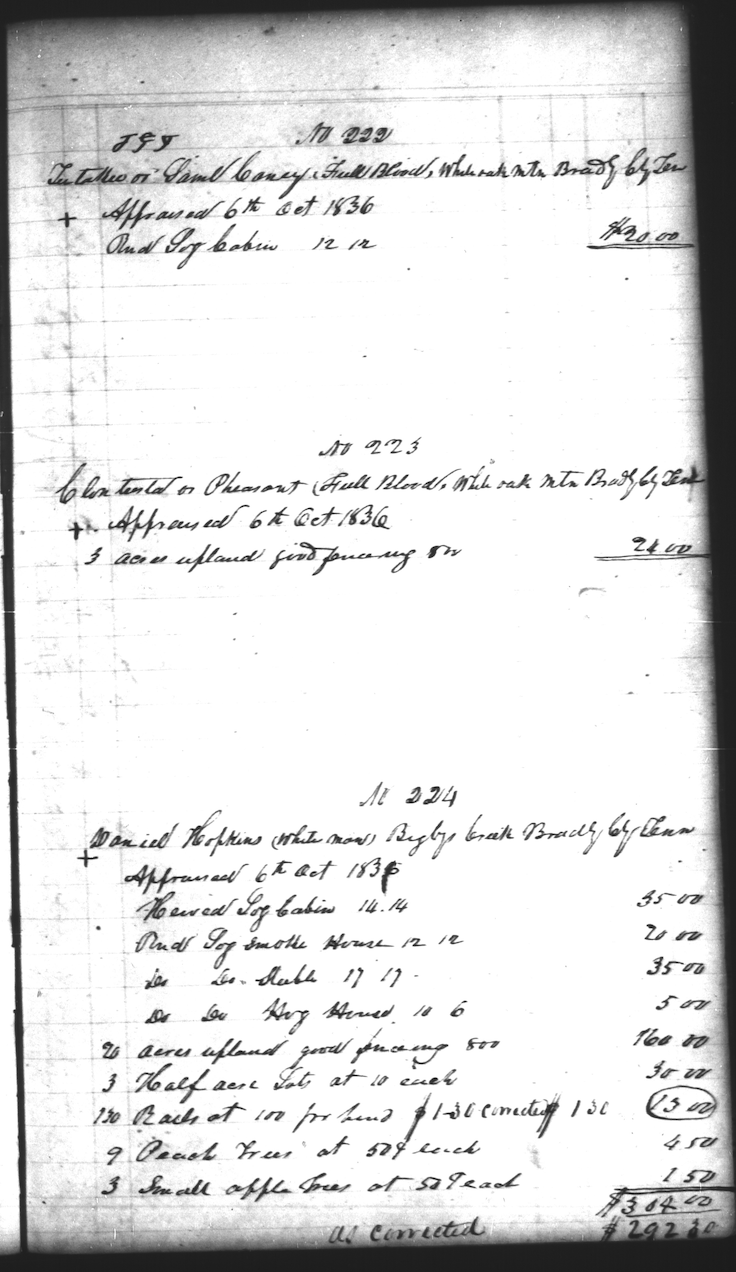 No 222
or Saml Caney (Full Blood, White oak Mtn Bradly Cty Ten
+ Appraised 6th Oct 1836
Rnd Log Cabin 12 12 $20.00
No 223
or Pheasant (Full Blood, White oak Mtn Bradly Cty Tenn
+ Appraised 6th Oct 1836
3 acres upland good fenceing 800 24 00
No 224
Daniel Hopkins (White man) Bigbys Creek Bradly Cty Tenn
+ Appraised 6th Oct 1836
Hewed Log Cabin 14.14 35 00
Rnd Log Smoke House 12 12 20 00
Do Do. Stable 17 17. 35 00
Do Do Hog House 10 6 5 00
20 acres upland good fenceing 800 160 00
3 Half acre Lots at 10 each 30 00
130 Rails at 100 pr hund $1-30 corrected $1 30 13 00
9 Peach Trees at 50¢ each 4 50
3 Small apple Trees at 50¢ each 1 50
$304 00
as corrected $292 30